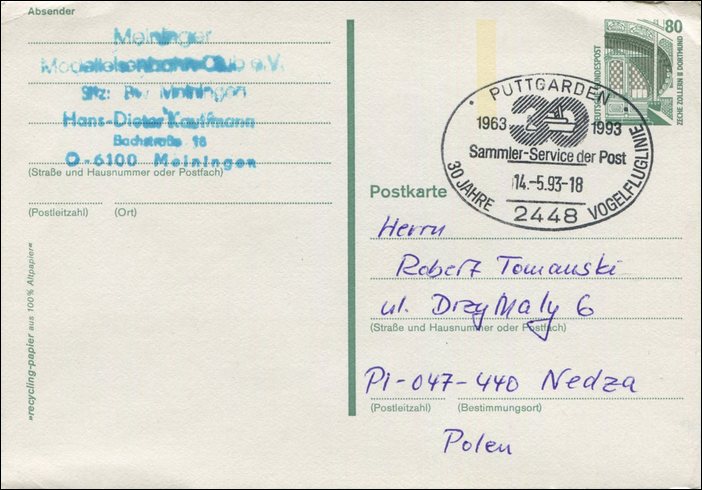 Absender
Meininger
Modelleisenbahn-Club e.V.
Sitz: Bw Meiningen
Hans-Dieter Kaufmann
Bachstraße 18
O-6100 Meiningen
(Straße und Hausnummer oder Postfach)
(Postleitzahl) (Ort)
»recycling-papier aus 100% Altpapier«
80
DEUTSCHE BUNDESPOST
ZECHE ZOLLERN II DORTMUND
PUTTGARDEN
1963 30 1993
Sammler-Service der Post
14.-5.93-18
2448
30 JAHRE VOGELFLUGLINIE
Postkarte
Herrn
Robert Tomanski
ul. DrzyMały 6
(Straße und Hausnummer oder Postfach)
Pl-047-440 Nedza
(Postleitzahl) (Bestimmungsort)
Polen